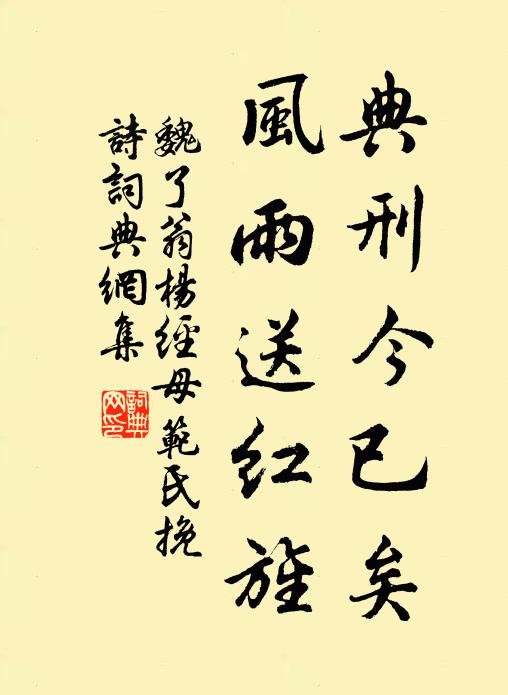 典刑今已矣
風雨送紅旌
魏了翁楊經母範氏挽
詩詞典網集
詞典网印